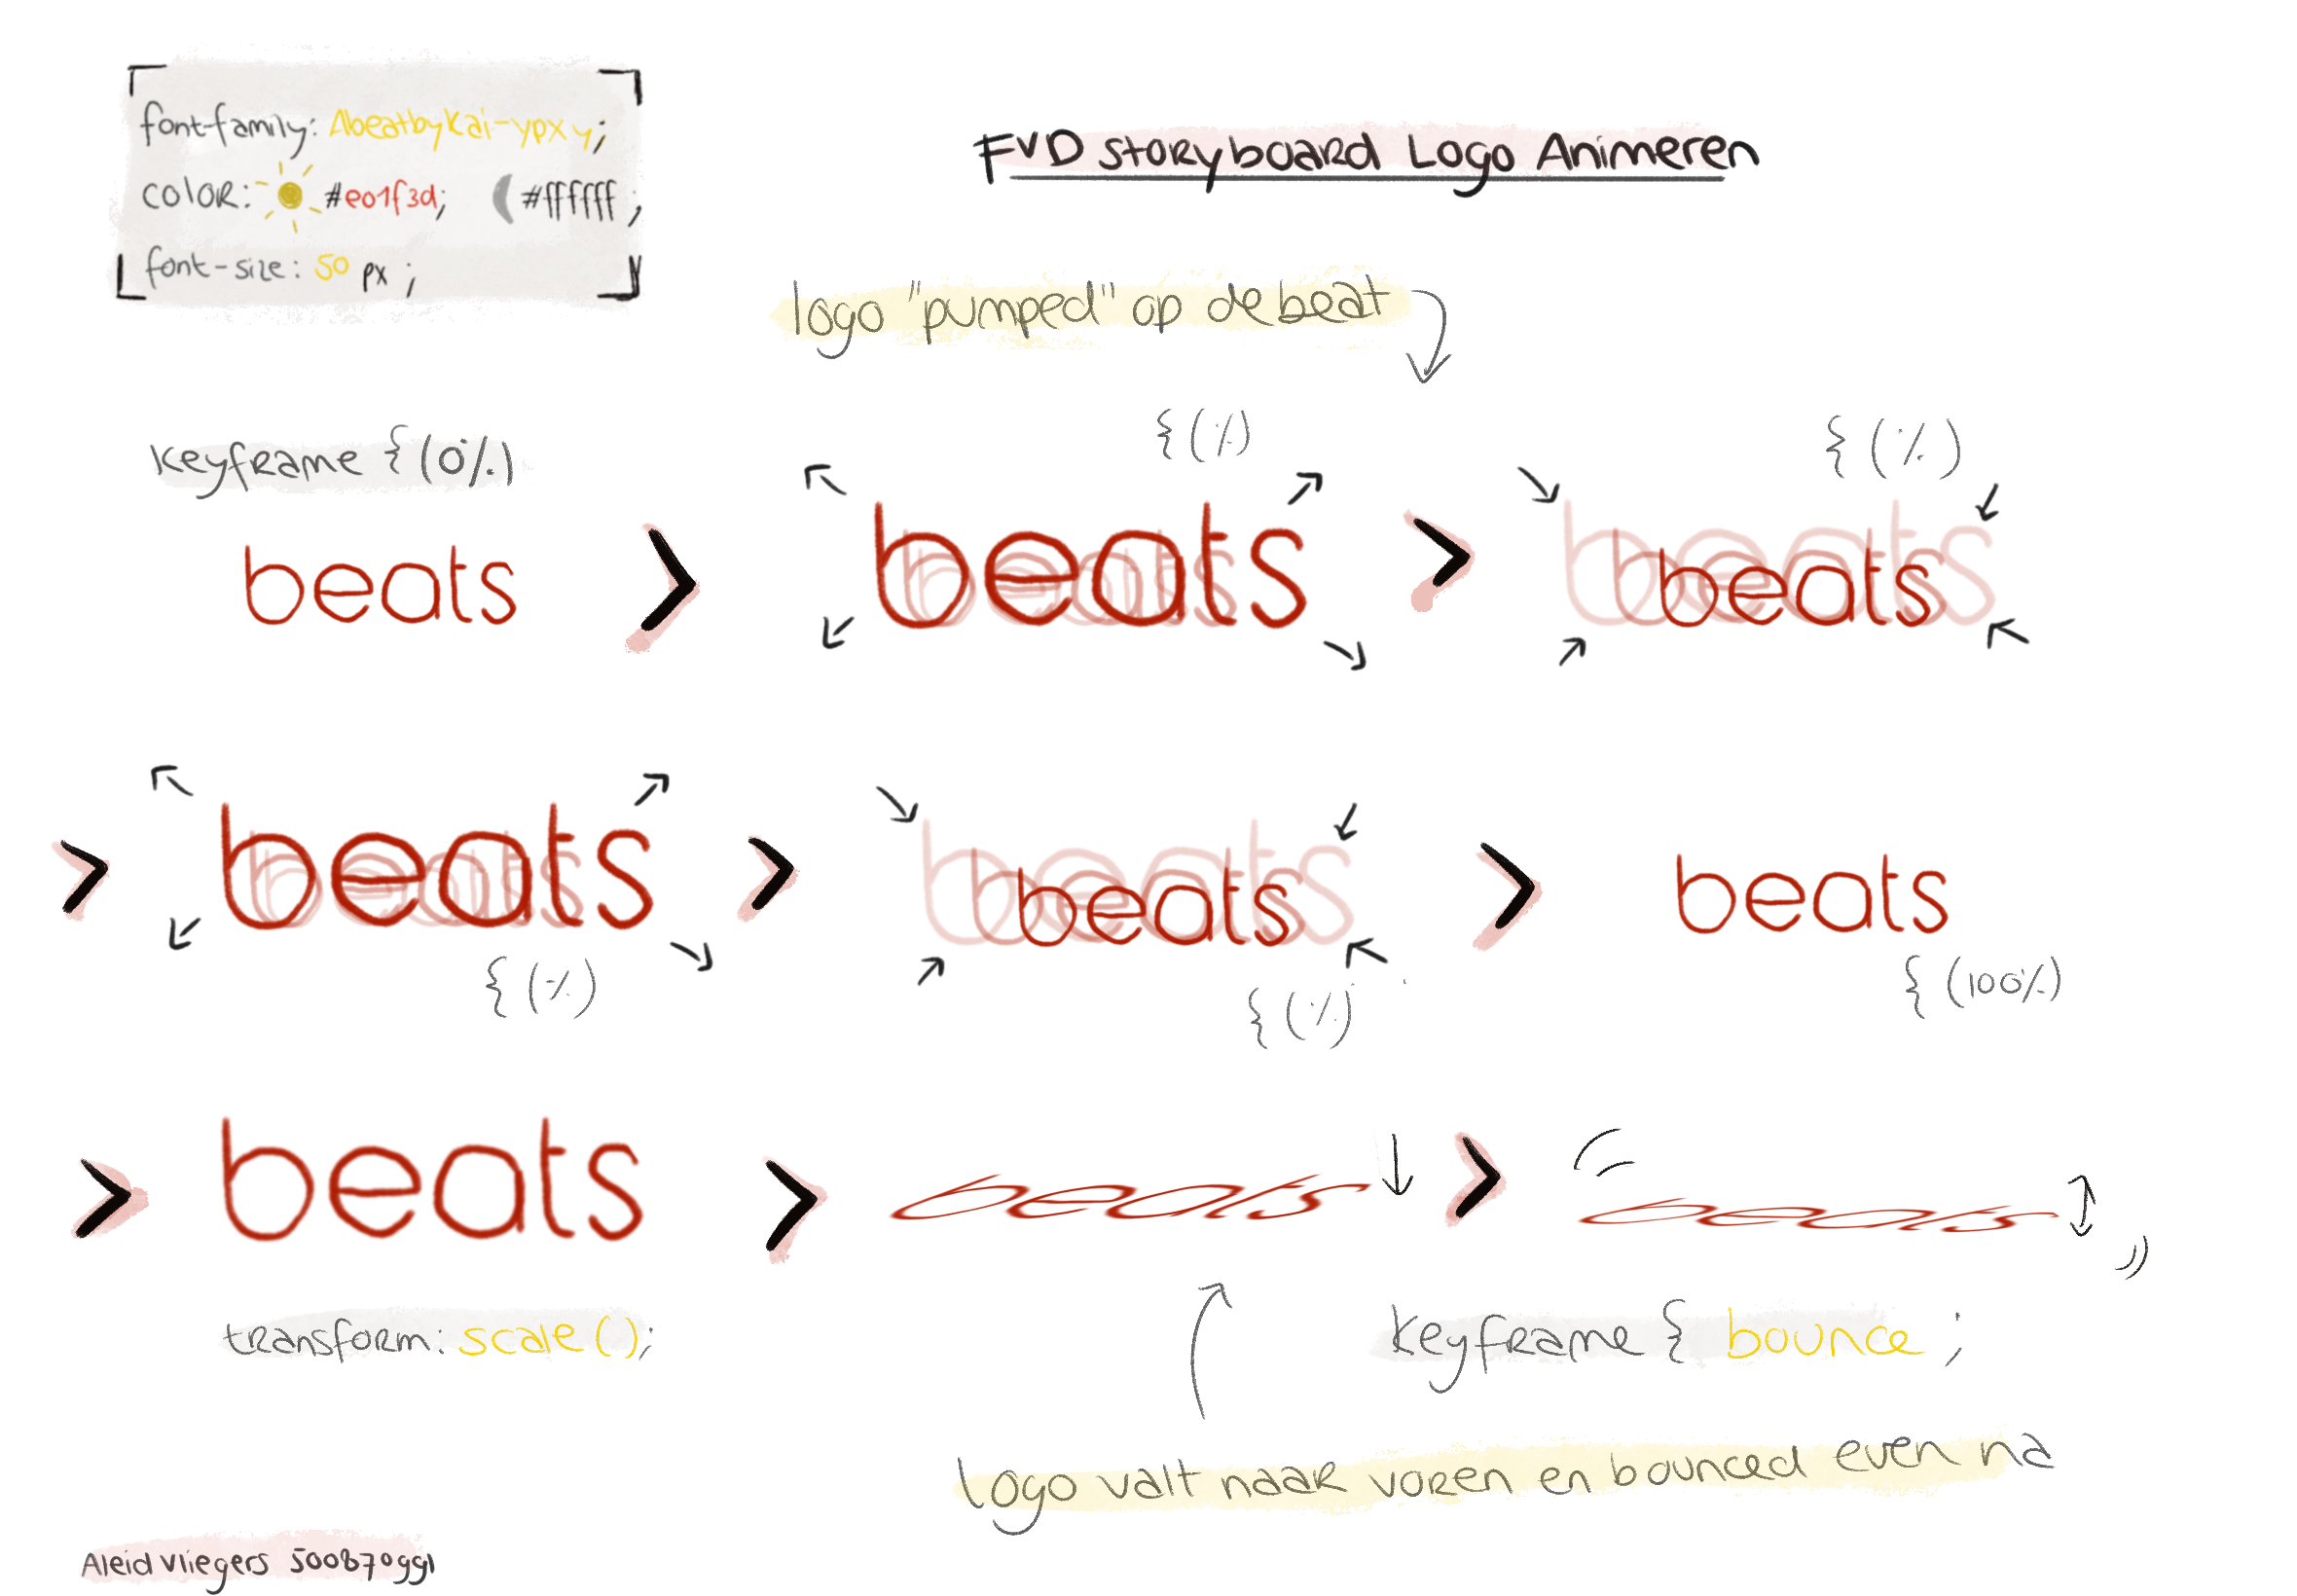 font-family: AbeatbyKai-ypxy;
color: #e01f3d; #ffffff;
font-size: 50 px;
FVD storyboard Logo Animeren
logo "pumped" op de beat
keyframe {(0%)
{(%)
{(%)
beats > beats > beats
> beats > beats > beats
{(%)
{(%)
{(100%)
> beats > beats > beats
transform: scale();
keyframe { bounce;
Logo valt naar voren en bounced even na
Aleid Vliegers 500870991